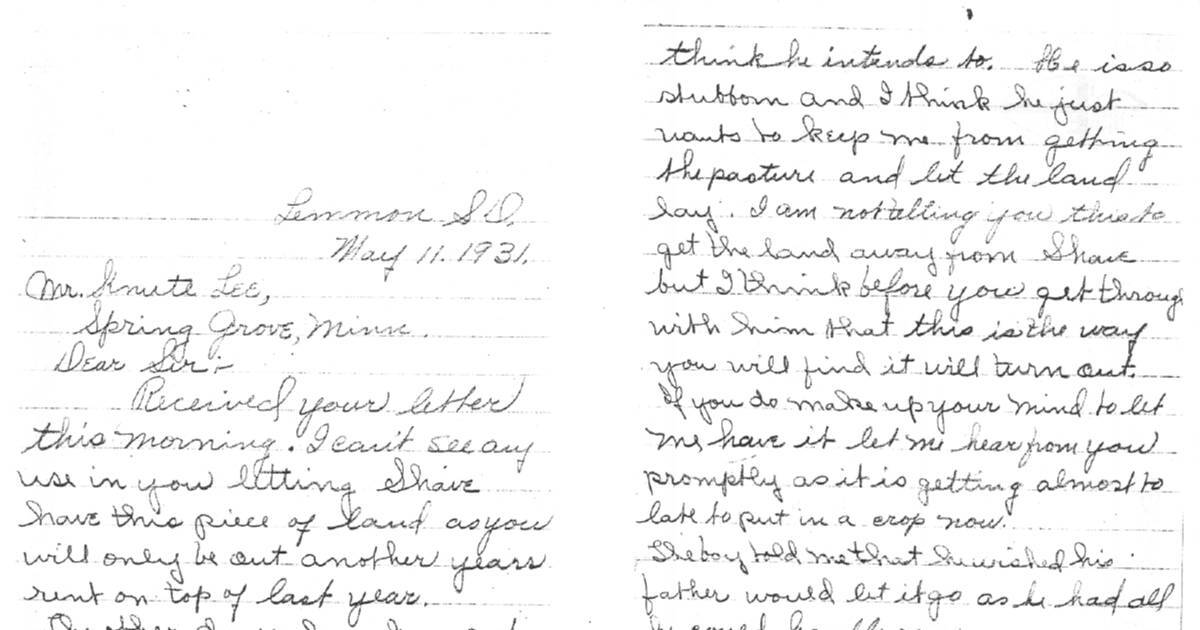 Lemmon S.D.
May 11. 1931.
Mr. Knute Lee,
Spring Grove, Minn.
Dear Sir:-
Received your letter
this morning. I can't see any
use in you letting Shave
have this piece of land as you
will only be out another years
rent on top of last year.
think he intends to. He is so
stubborn and I think he just
wants to keep me from getting
the pasture and let the land
lay. I am not telling you this to
get the land away from Shave
but I think before you get through
with him that this is the way
you will find it will turn out.
If you do make up your mind to let
me have it let me hear from you
promptly as it is getting almost to
late to put in a crop now.
The boy told me that he wished his
father would let it go as he had all